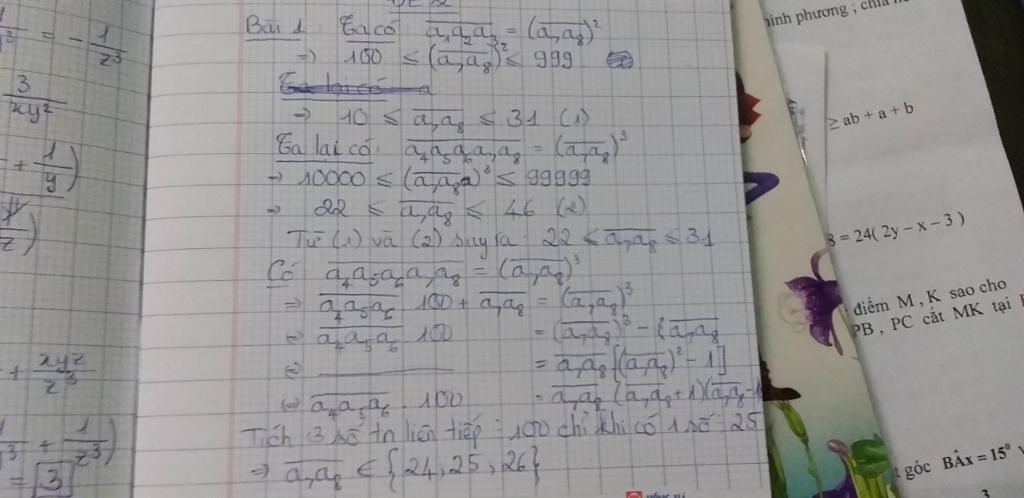 Bài 1 Ta có a₁a₂a₃ = (a₇a₈)²
⇒ 100 ≤ (a₇a₈)² ≤ 999
⇒ 10 ≤ a₇a₈ ≤ 31 (1)
Ta lại có: a₄a₅a₆a₇a₈ = (a₇a₈)³
⇒ 10000 ≤ (a₇a₈)³ ≤ 99999
⇒ 22 ≤ a₇a₈ ≤ 46 (2)
Từ (1) và (2) suy ra 22 ≤ a₇a₈ ≤ 31
Có a₄a₅a₆a₇a₈ = (a₇a₈)³
⇒ a₄a₅a₆ 100 + a₇a₈ = (a₇a₈)³
⇔ a₄a₅a₆ 100 = (a₇a₈)³ - (a₇a₈
⇔ = a₇a₈ [(a₇a₈)² - 1]
⇔ a₄a₅a₆ . 100 = a₇a₈ (a₇a₈ + 1)(a₇a₈ - 1
Tích 3 số tn liên tiếp ⋮ 100 chỉ khi có 1 số ⋮ 25
⇒ a₇a₈ ∈ {24, 25, 26}
= - 1/z³
3/xyz
+ 1/y)
z)
+ xyz/z³
+ 1/z³)
= 3
hình phương ; chia
≥ ab + a + b
= 24( 2y – x – 3 )
điểm M , K sao cho
PB , PC cắt MK tại
góc BÂx = 15⁰
3